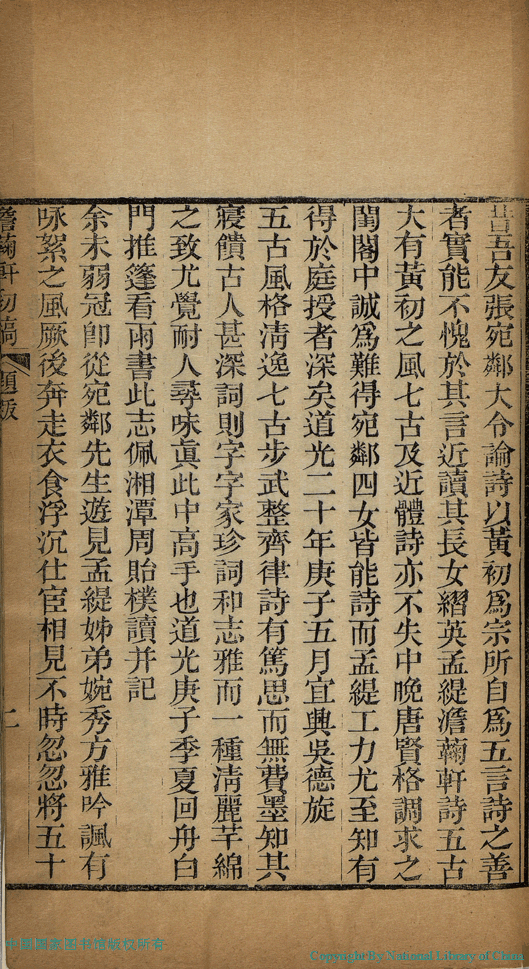 昔吾友張宛鄰大令論詩以黃初爲宗所自爲五言詩之善
者實能不愧於其言近讀其長女䌖英孟緹澹蘜軒詩五古
大有黃初之風七古及近體詩亦不失中晚唐賢格調求之
閨閣中誠爲難得宛鄰四女皆能詩而孟緹工力尤至知有
得於庭授者深矣道光二十年庚子五月宜興吳德旋
五古風格清逸七古步武整齊律詩有篤思而無費墨知其
寢饋古人甚深詞則字字家珍詞和志雅而一種清麗芊綿
之致尤覺耐人尋味真此中高手也道光庚子季夏回舟白
門推篷看雨書此志佩湘潭周貽樸讀并記
余未弱冠卽從宛鄰先生遊見孟緹姊弟婉秀方雅吟諷有
咏絮之風厥後奔走衣食浮沉仕宦相見不時忽忽將五十
澹蘜軒初稿 題 二
中國國家图书馆版权所有
Copyright By National Library of China